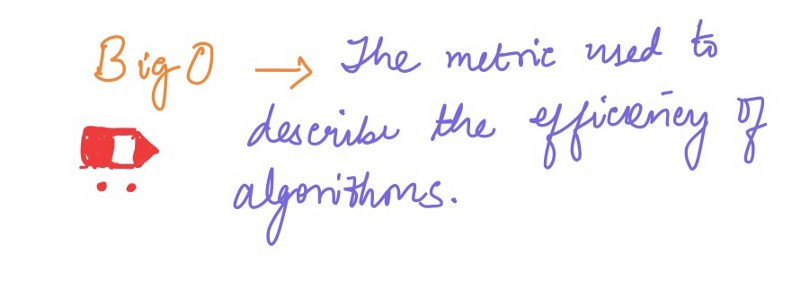 Big O → The metric used to
describe the efficiency of
algorithms.